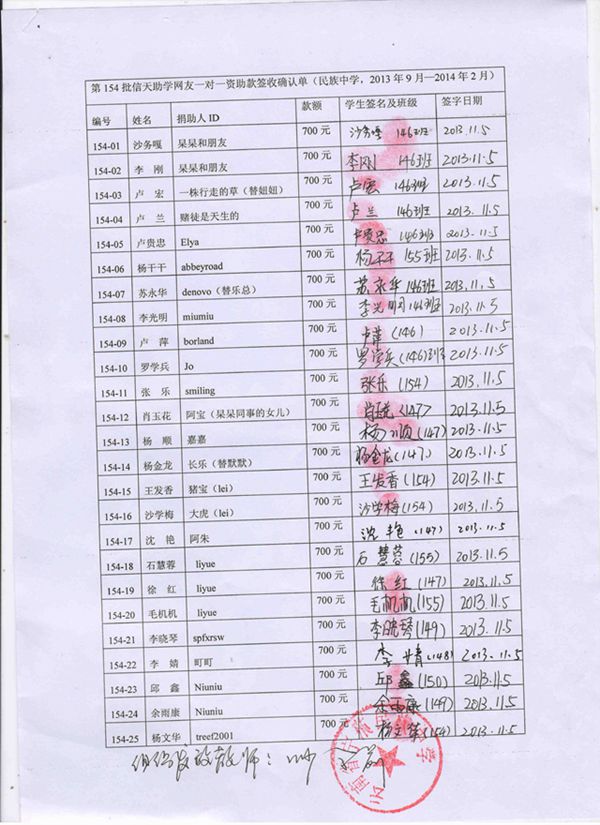 第 154 批信天助学网友一对一资助款签收确认单（民族中学，2013 年 9 月—2014 年 2 月）
编号 姓名 捐助人 ID 款额 学生签名及班级 签字日期
154-01 沙务嘎 呆呆和朋友 700 元 沙务嘎 146班 2013.11.5
154-02 李 刚 呆呆和朋友 700 元 李刚 146班 2013.11.5
154-03 卢 宏 一株行走的草（替妞妞） 700 元 卢宏 146班 2013.11.5
154-04 卢 兰 赌徒是天生的 700 元 卢兰 146班 2013.11.5
154-05 卢贵忠 Elya 700 元 卢贵忠 146班 2013.11.5
154-06 杨干干 abbeyroad 700 元 杨干干 155班 2013.11.5
154-07 苏永华 denovo（替乐总） 700 元 苏永华 146班 2013.11.5
154-08 李光明 miumiu 700 元 李光明 146班 2013.11.5
154-09 卢 萍 borland 700 元 卢萍 (146) 2013.11.5
154-10 罗学兵 Jo 700 元 罗学兵 (146)班 2013.11.5
154-11 张 乐 smiling 700 元 张乐 (154) 2013.11.5
154-12 肖玉花 阿宝（呆呆同事的女儿） 700 元 (147) 2013.11.5
154-13 杨 顺 嘉嘉 700 元 杨顺 (147) 2013.11.5
154-14 杨金龙 长乐（替默默） 700 元 杨金龙 (147) 2013.11.5
154-15 王发香 猪宝（lei） 700 元 王发香 (154) 2013.11.5
154-16 沙学梅 大虎（lei） 700 元 沙学梅 (154) 2013.11.5
154-17 沈 艳 阿朱 700 元 沈艳 (147) 2013.11.5
154-18 石慧蓉 liyue 700 元 石慧蓉 (155) 2013.11.5
154-19 徐 红 liyue 700 元 徐红 (147) 2013.11.5
154-20 毛机机 liyue 700 元 毛机机 (155) 2013.11.5
154-21 李晓琴 spfxrsw 700 元 李晓琴 (149) 2013.11.5
154-22 李 婧 町町 700 元 李婧 (148) 2013.11.5
154-23 邱 鑫 Niuniu 700 元 邱鑫 (150) 2013.11.5
154-24 余雨康 Niuniu 700 元 余雨康 (149) 2013.11.5
154-25 杨文华 treef2001 700 元 杨文华 (154) 2013.11.5